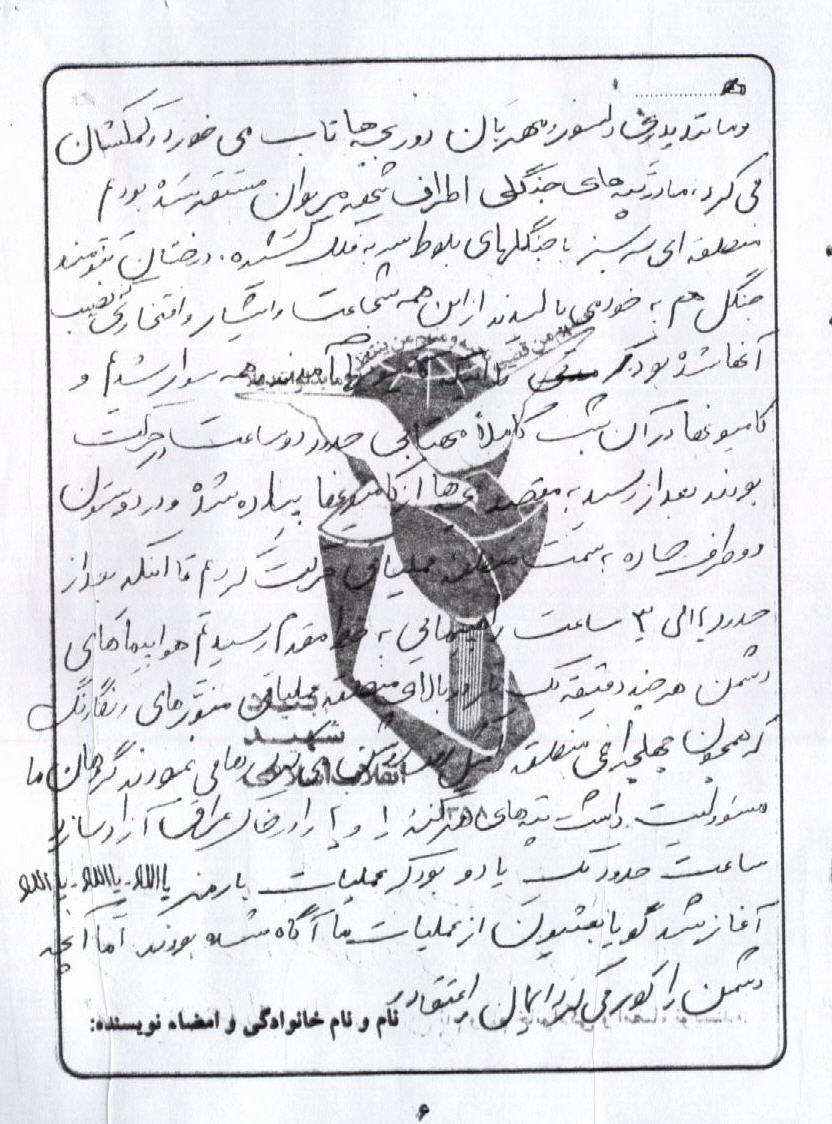 و مانند پدری دلسوز و مهربان دور بچه‌ها تاب می خورد و کمکشان
می کرد، ما در تپه های جنگلی اطراف شهر مریوان مستقر شده بودیم
منطقه ای سرسبز با جنگلهای بلوط سر به فلک کشیده، درختان تنومند
جنگل هم به خود می بالیدند از این همه شجاعت و ایثار و افتخاری که نصیب
آنها شده بود که همه سوار شدیم و
کامیونها در آن شب کاملاً مهتابی حدود دو ساعت در حرکت
بودند بعد از رسیدن به مقصد بچه ها از کامیونها پیاده شده و در دو ستون
دو طرف جاده به سمت منطقه عملیاتی حرکت کردیم تا اینکه بعد از
حدود ۲ الی ۳ ساعت راهپیمائی به خط مقدم رسیدیم هواپیماهای
دشمن هر چند دقیقه یک بار بر بالای منطقه عملیاتی منورهای رنگارنگ
که همچون چهلچراغی منطقه را می نمودند گردان ما
مسئولیت داشت تپه های را در خاک عراق آزاد سازد
ساعت حدود یک یا دو بود که عملیات با رمز یا الله - یا الله - یا الله
آغاز شد گویا بعثیون از عملیات ما آگاه شده بودند اما آنچه
دشمن را کور می کرد ایمان و اعتقاد
بنیاد
شهید
انقلاب اسلامی
نام و نام خانوادگی و امضاء نویسنده:
۶